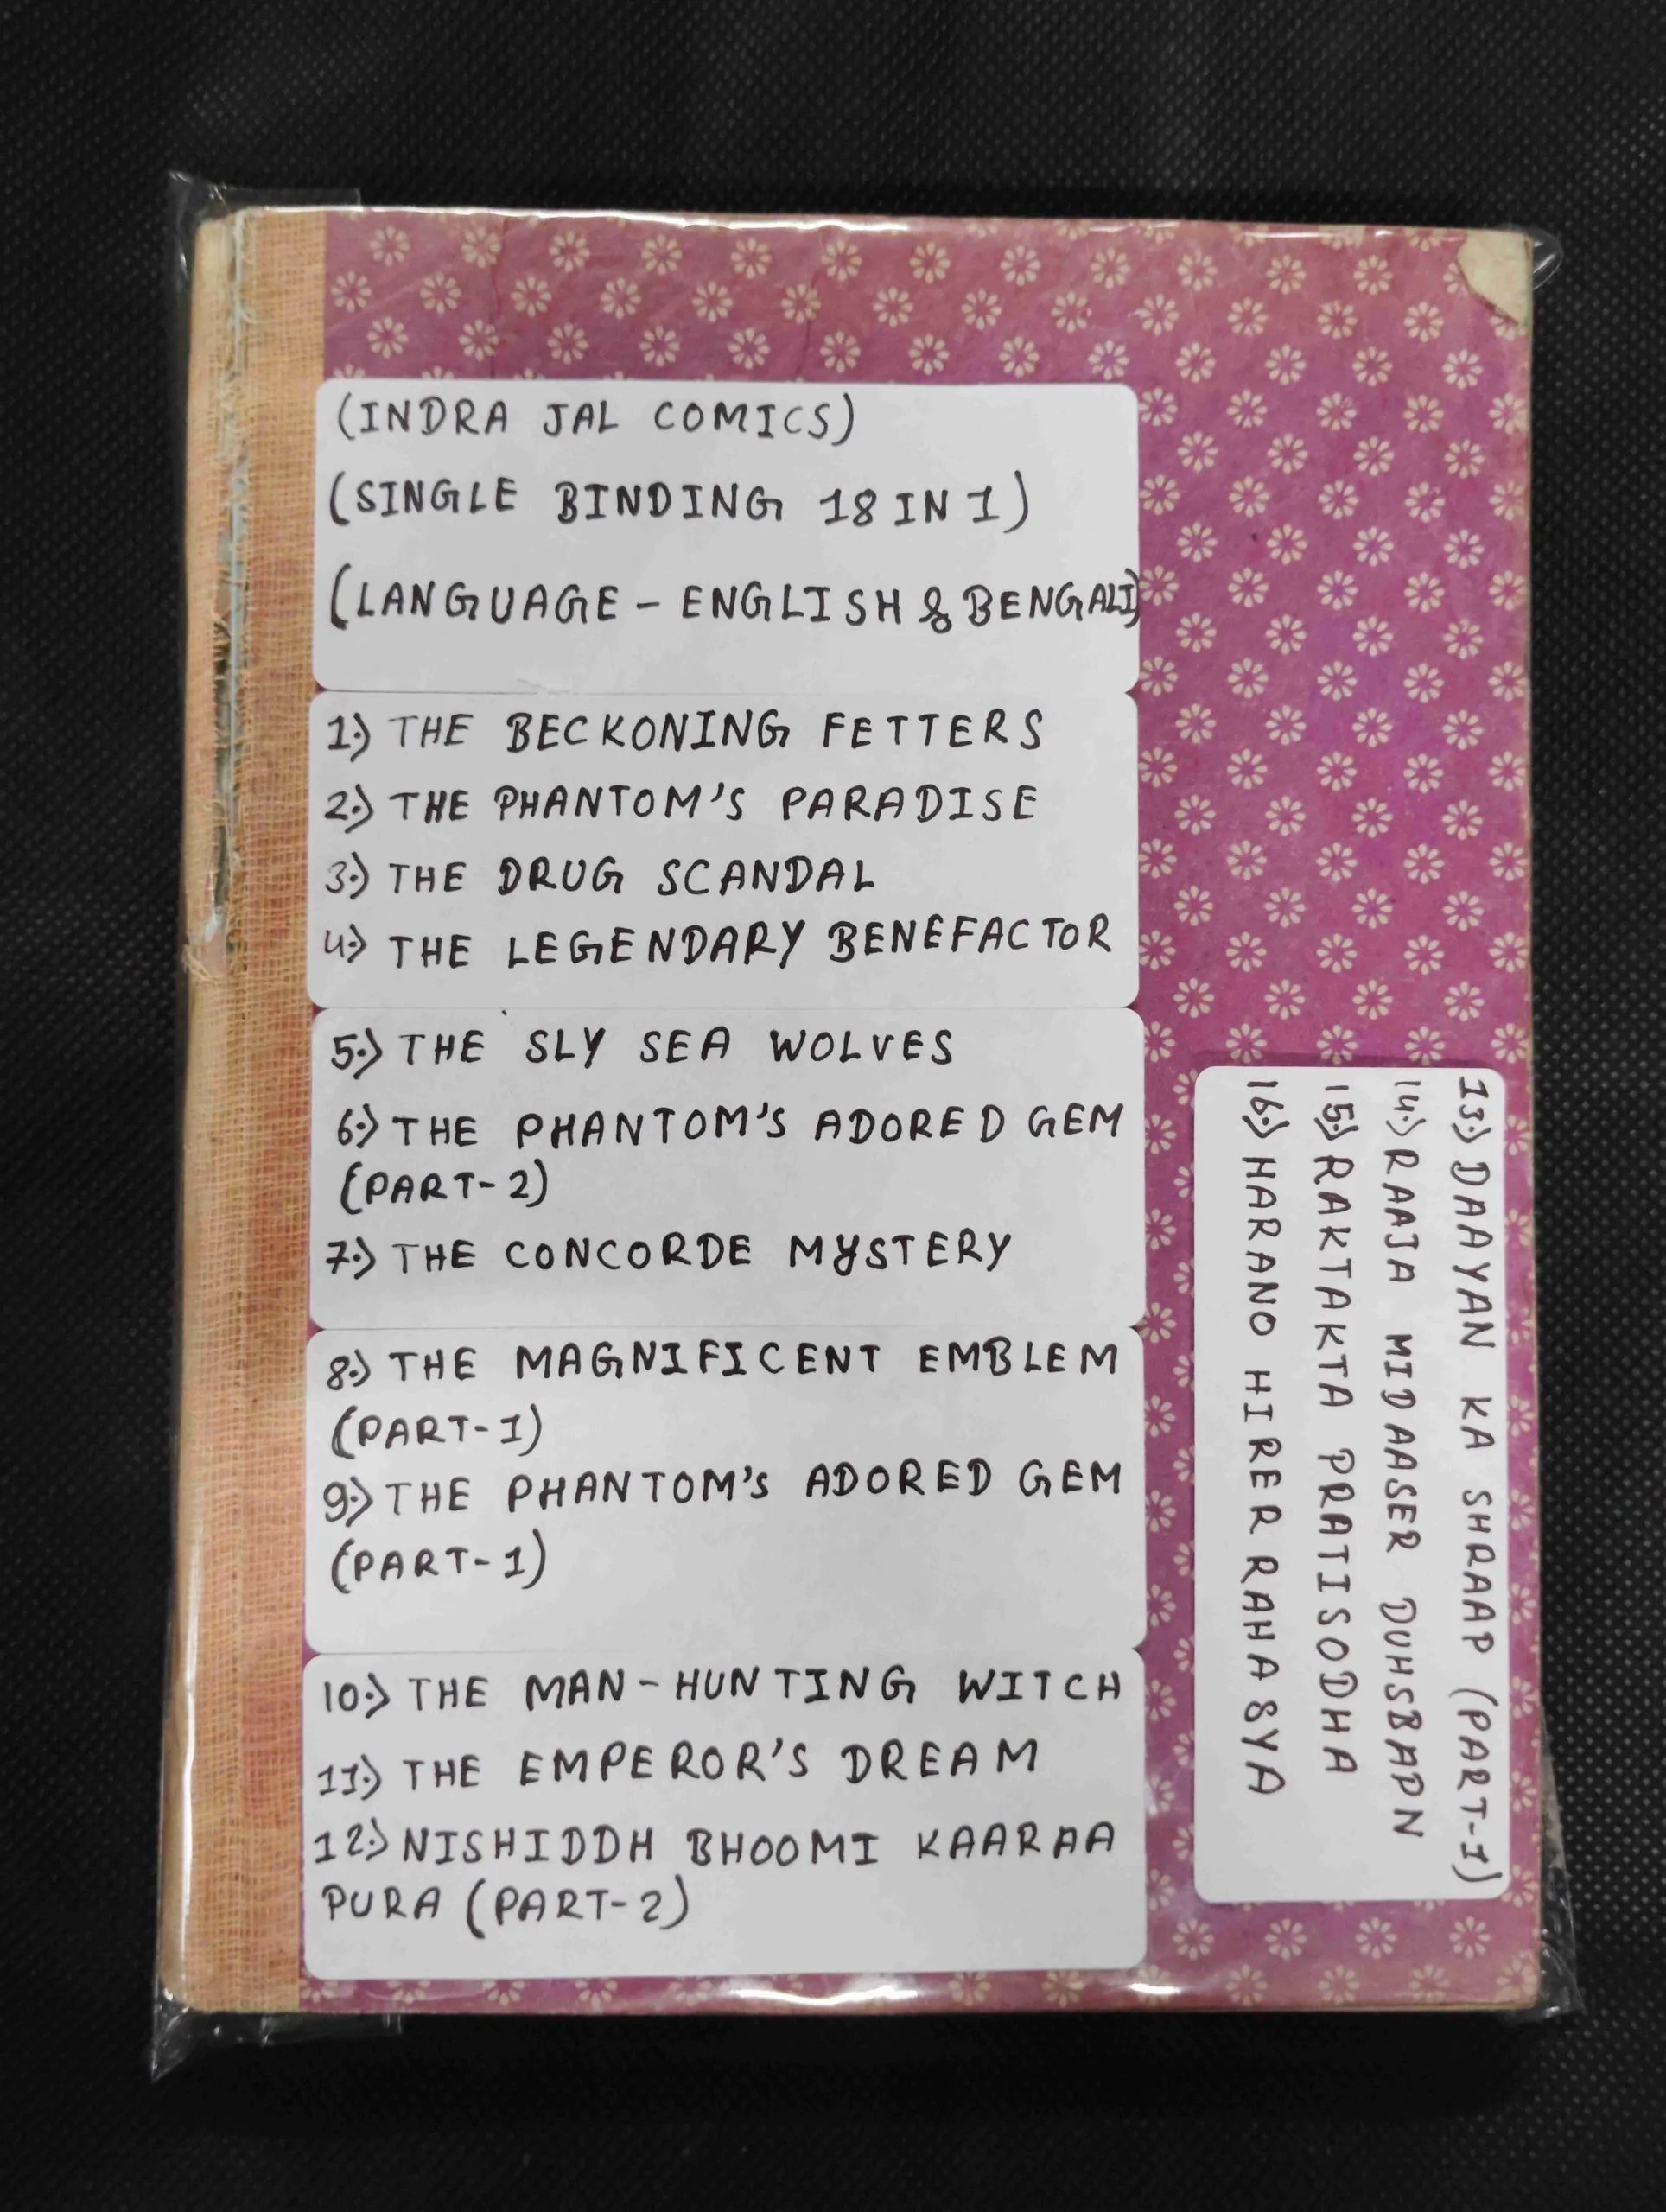 (INDRA JAL COMICS)
(SINGLE BINDING 18 IN 1)
(LANGUAGE - ENGLISH & BENGALI)
1.) THE BECKONING FETTERS
2.) THE PHANTOM'S PARADISE
3.) THE DRUG SCANDAL
4.) THE LEGENDARY BENEFACTOR
5.) THE SLY SEA WOLVES
6.) THE PHANTOM'S ADORED GEM
(PART-2)
7.) THE CONCORDE MYSTERY
8.) THE MAGNIFICENT EMBLEM
(PART-1)
9.) THE PHANTOM'S ADORED GEM
(PART-1)
10.) THE MAN-HUNTING WITCH
11.) THE EMPEROR'S DREAM
12.) NISHIDDH BHOOMI KAARAA
PURA (PART-2)
13.) DAAYAN KA SHRAAP (PART-1)
14.) RAAJA MIDAASER DUHSBAPN
15.) RAKTAKTA PRATISODHA
16.) HARANO HIRER RAHASYA